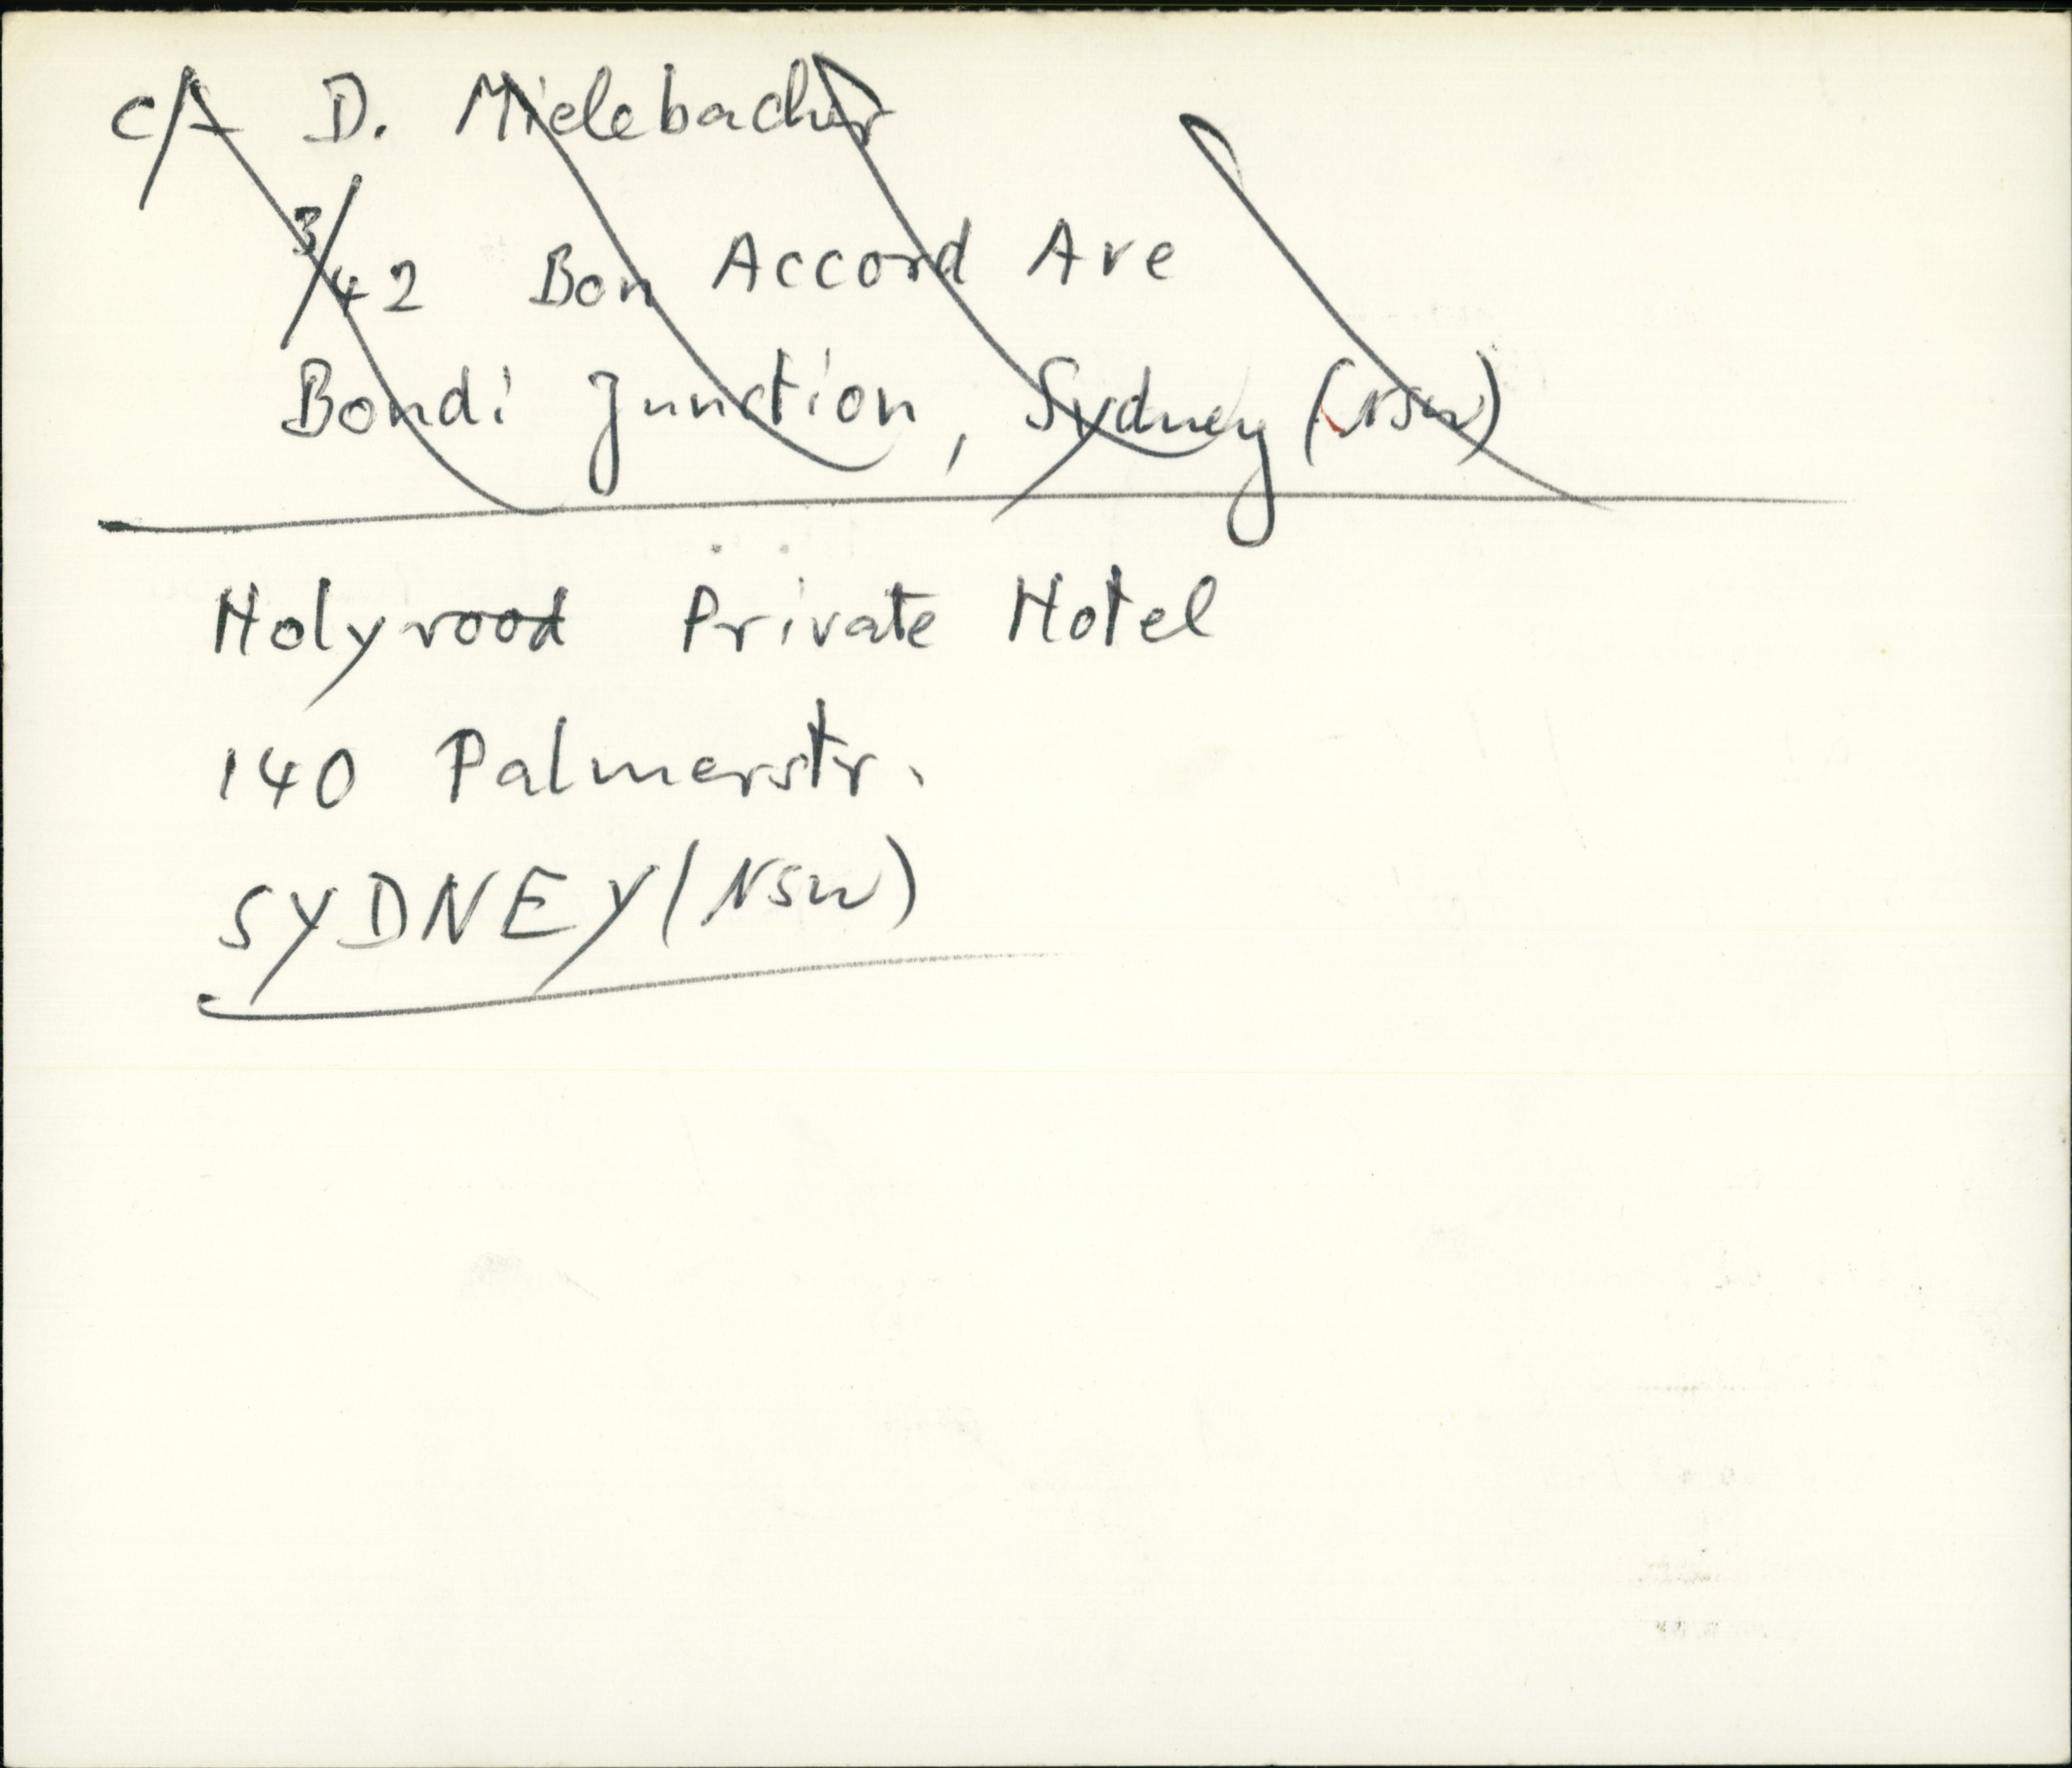 c/A D. Mielebacher
3/42 Bon Accord Ave
Bondi Junction, Sydney (NSW)
Holyrood Private Hotel
140 Palmerstr.
SYDNEY (NSW)